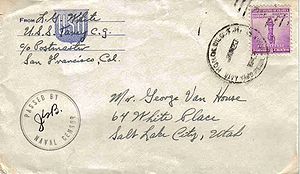 From L. G. White
U.S.S.
c/o Postmaster
San Francisco, Cal.
USO
PASSED BY
NAVAL CENSOR
Mr. George Van House
67 White Place
Salt Lake City, Utah